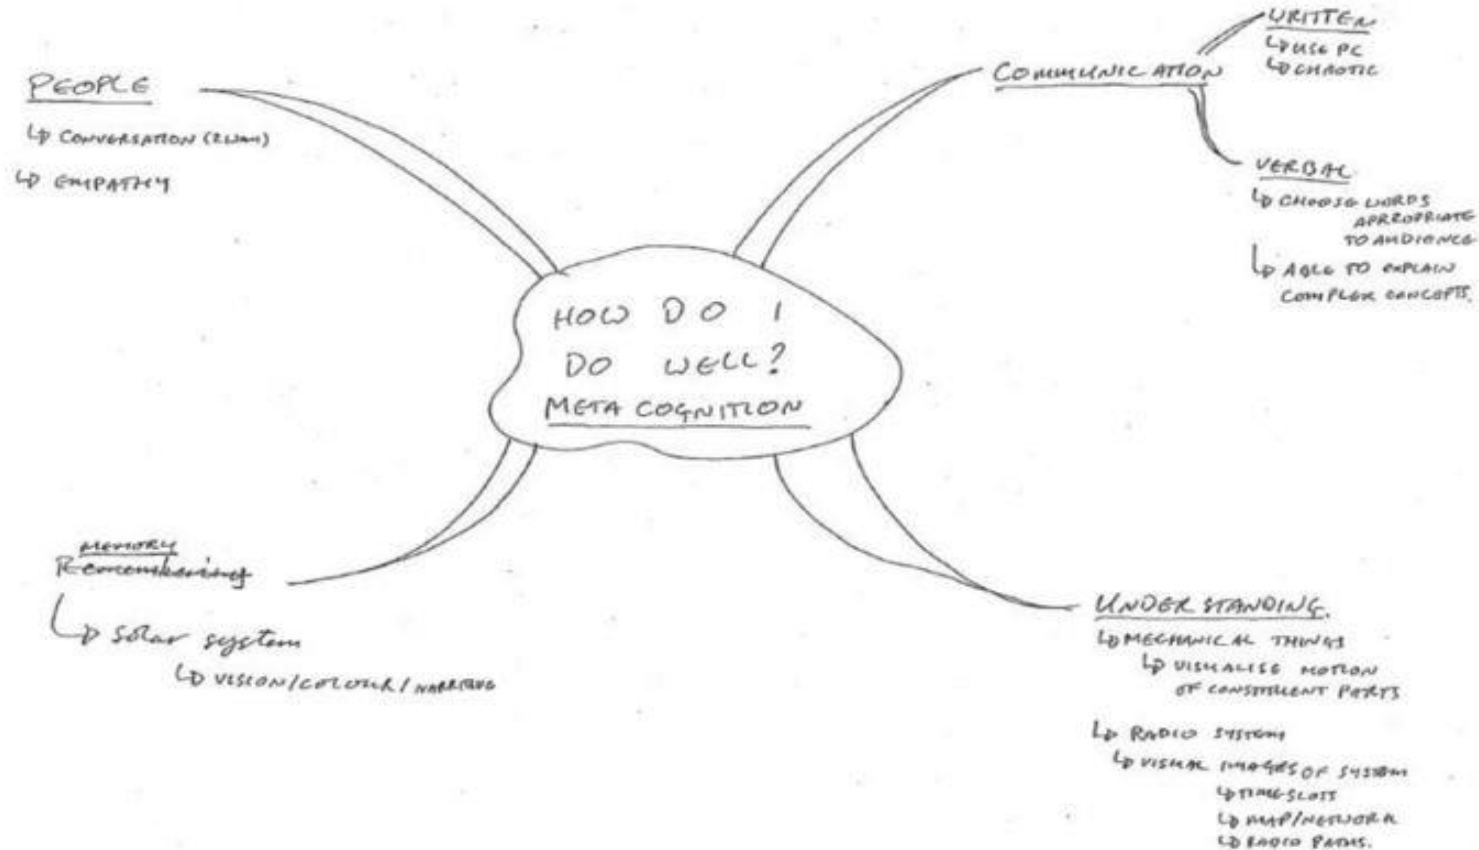 PEOPLE
↳ CONVERSATION (2WAY)
↳ EMPATHY
COMMUNICATION
WRITTEN
↳ USE PC
↳ CHAOTIC
VERBAL
↳ CHOOSE WORDS
APRROPRIATE
TO AUDIENCE
↳ ABLE TO EXPLAIN
COMPLEX CONCEPTS.
HOW DO I
DO WELL?
META COGNITION
MEMORY
Remembering
↳ Solar system
↳ VISION/COLOUR/NARRITIVE
UNDERSTANDING.
↳ MECHANICAL THINGS
↳ VISUALISE MOTION
OF CONSTITUENT PARTS
↳ RADIO SYSTEM
↳ VISUAL IMAGES OF SYSTEM
↳ TIMESLOTS
↳ MAP/NETWORK
↳ RADIO PATHS.